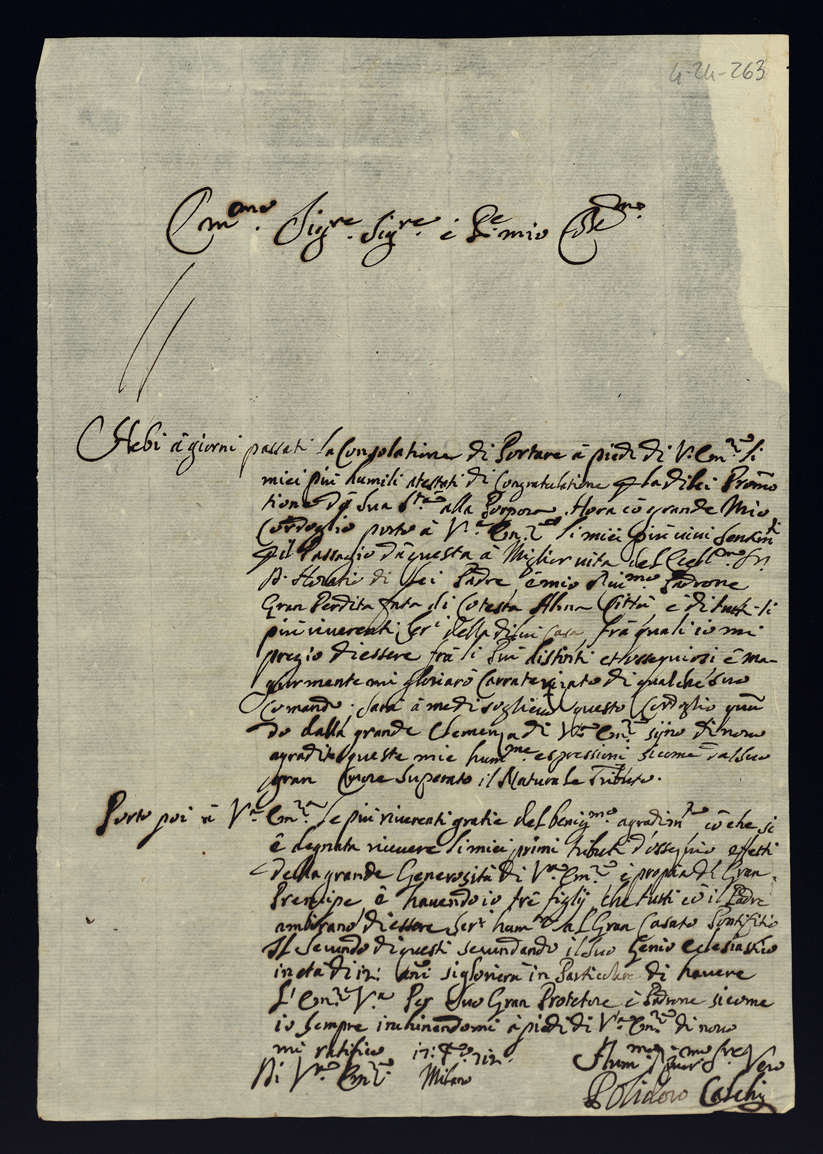 4-24-263
Em.mo Sig.re Sig.re e P.ne mio
Hebi à giorni passati la Consolatione di Portare à piedi di V. Em.za li
miei più humili atestati di Congratulatione la di lei Promo
tione Sua S.tà alla Porpora. Hora cō grande Mio
Cordoglio porto à V.a Em.za li miei più vivi
il Passagio da questa à Miglior vita del
di lei Padre è mio Padrone
Gran Perdita fata di Cotesta Alma Città e di tutti li
più riverenti della di lui Casa frà quali io mi
pregio d'essere frà li Più distinti et osseguiosi è ma
giormente mi gloriarò Carraterizato di qualche suo
Comando. Sarà à me di soglievo questo Cordoglio quā
do dalla grande Clemenza di V.ra Em.za sijno di novo
agradite queste mie hum.me espressioni sicome dal suo
gran Cuore Superato il Naturale Tributo.
Porto poi à V.a Em.za le più riverenti gratie del benig.mo agradim.to cō che si
è degnata ricevere li miei primi tributi d'osseguio effetti
della grande Generosità di V.ra Em.za è propria di Gran
Prencipe è havendo io trè figlij che tutti cō il Padre
ambirano d'essere Ser.i hum.i al Gran Casato Pontifitio
Il Secondo di questi secundando il suo Genio eclesiastico
in età di anni si gloriera in Particolare di havere
L'Em.za V.a Per suo Gran Protetore è Padrone sicome
io sempre inchinendomi à piedi di V.a Em.za di novo
mi ratifico
Di V.ra Em.za Milano Ser.re Vero
Polidoro